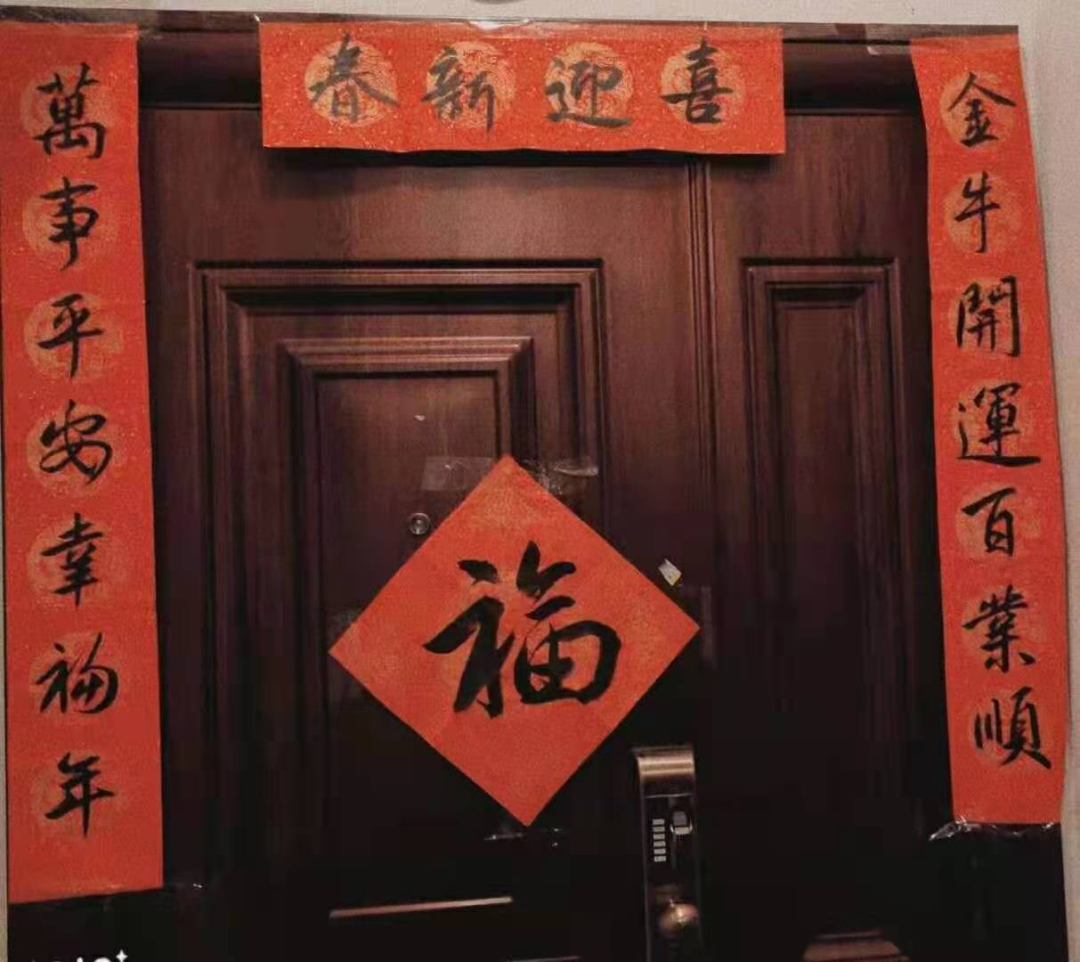 喜迎新春
金牛開運百業順
萬事平安幸福年
福